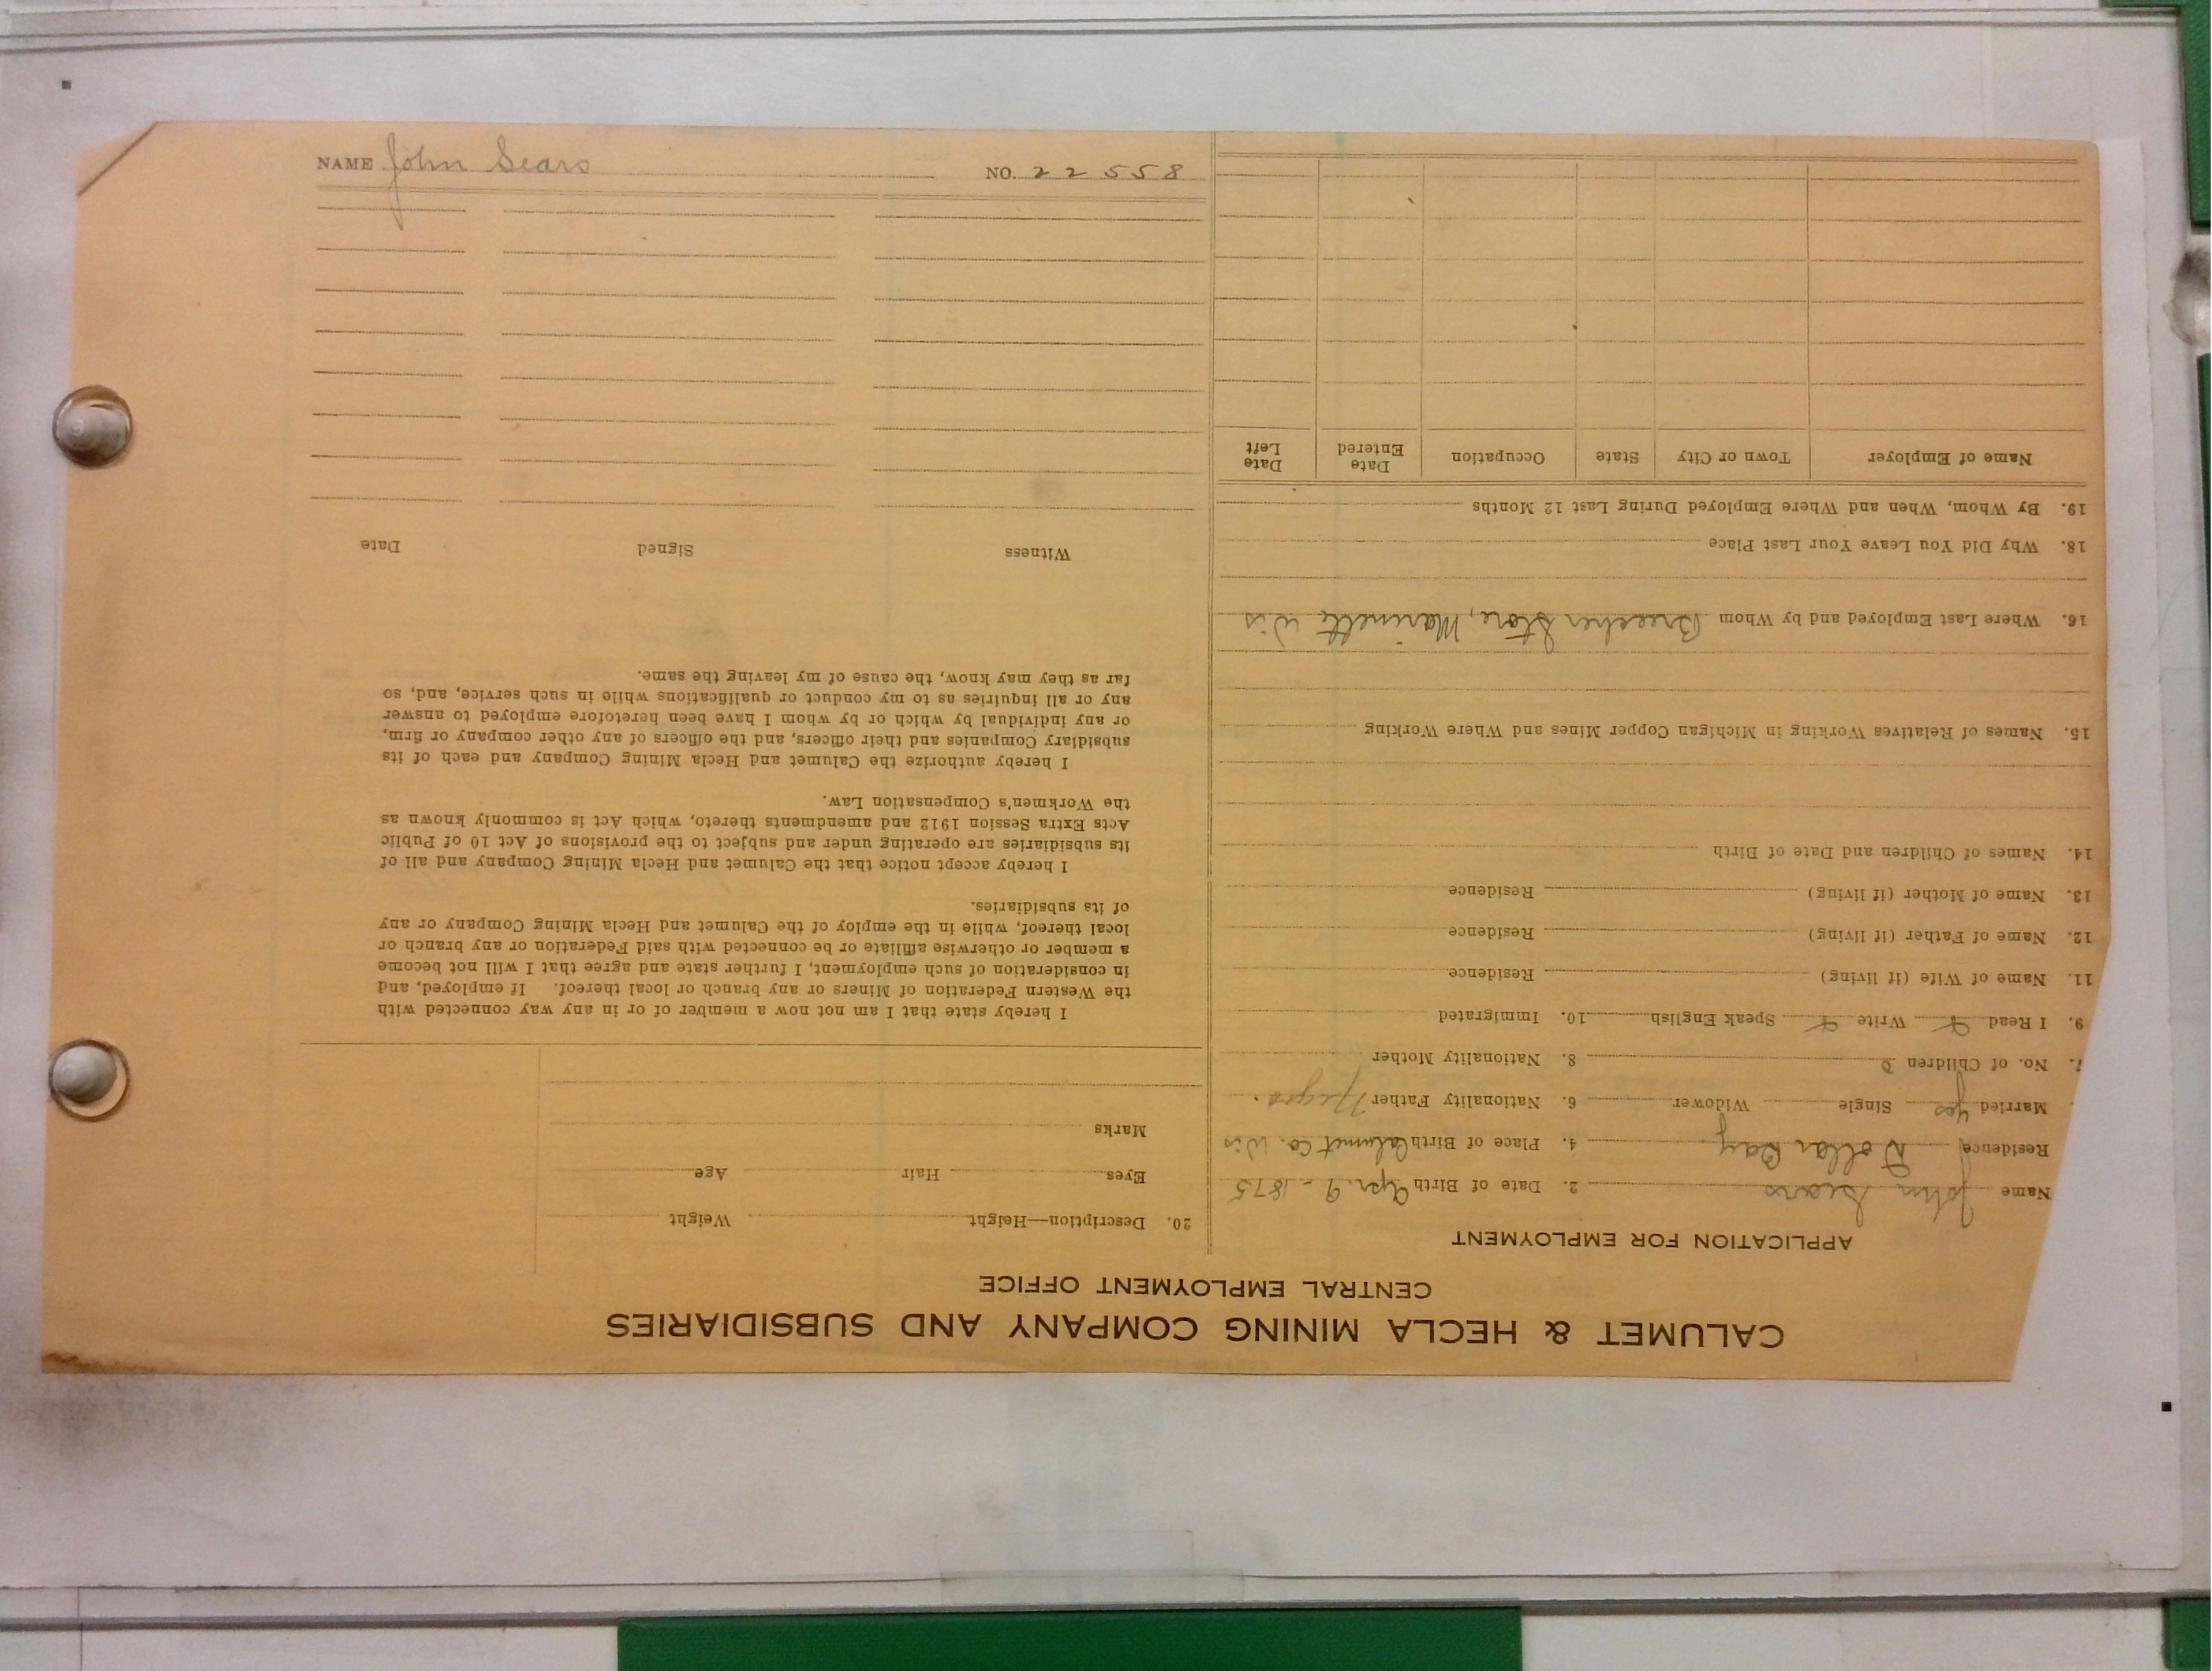 NAME John Sears NO. 22558
CALUMET & HECLA MINING COMPANY AND SUBSIDIARIES
CENTRAL EMPLOYMENT OFFICE
APPLICATION FOR EMPLOYMENT
Name John Sears 2. Date of Birth Apr. 9 - 1875
Residence Dollar Bay 4. Place of Birth Calumet Co. Wis
Married Yes Single Widower 6. Nationality Father Negro.
7. No. of Children 0 8. Nationality Mother
9. I Read Write Speak English 10. Immigrated
11. Name of Wife (if living) Residence
12. Name of Father (if living) Residence
13. Name of Mother (if living) Residence
14. Names of Children and Date of Birth
15. Names of Relatives Working in Michigan Copper Mines and Where Working
16. Where Last Employed and by Whom Store, Marinette Wis
18. Why Did You Leave Your Last Place
19. By Whom, When and Where Employed During Last 12 Months
Name of Employer Town or City State Occupation Date Entered Date Left
20. Description—Height Weight
Eyes Hair Age
Marks
I hereby state that I am not now a member of or in any way connected with
the Western Federation of Miners or any branch or local thereof. If employed, and
in consideration of such employment, I further state and agree that I will not become
a member or otherwise affiliate or be connected with said Federation or any branch or
local thereof, while in the employ of the Calumet and Hecla Mining Company or any
of its subsidiaries.
I hereby accept notice that the Calumet and Hecla Mining Company and all of
its subsidiaries are operating under and subject to the provisions of Act 10 of Public
Acts Extra Session 1912 and amendments thereto, which Act is commonly known as
the Workmen's Compensation Law.
I hereby authorize the Calumet and Hecla Mining Company and each of its
subsidiary Companies and their officers, and the officers of any other company or firm,
or any individual by which or by whom I have been heretofore employed to answer
any or all inquiries as to my conduct or qualifications while in such service, and, so
far as they may know, the cause of my leaving the same.
Witness Signed Date